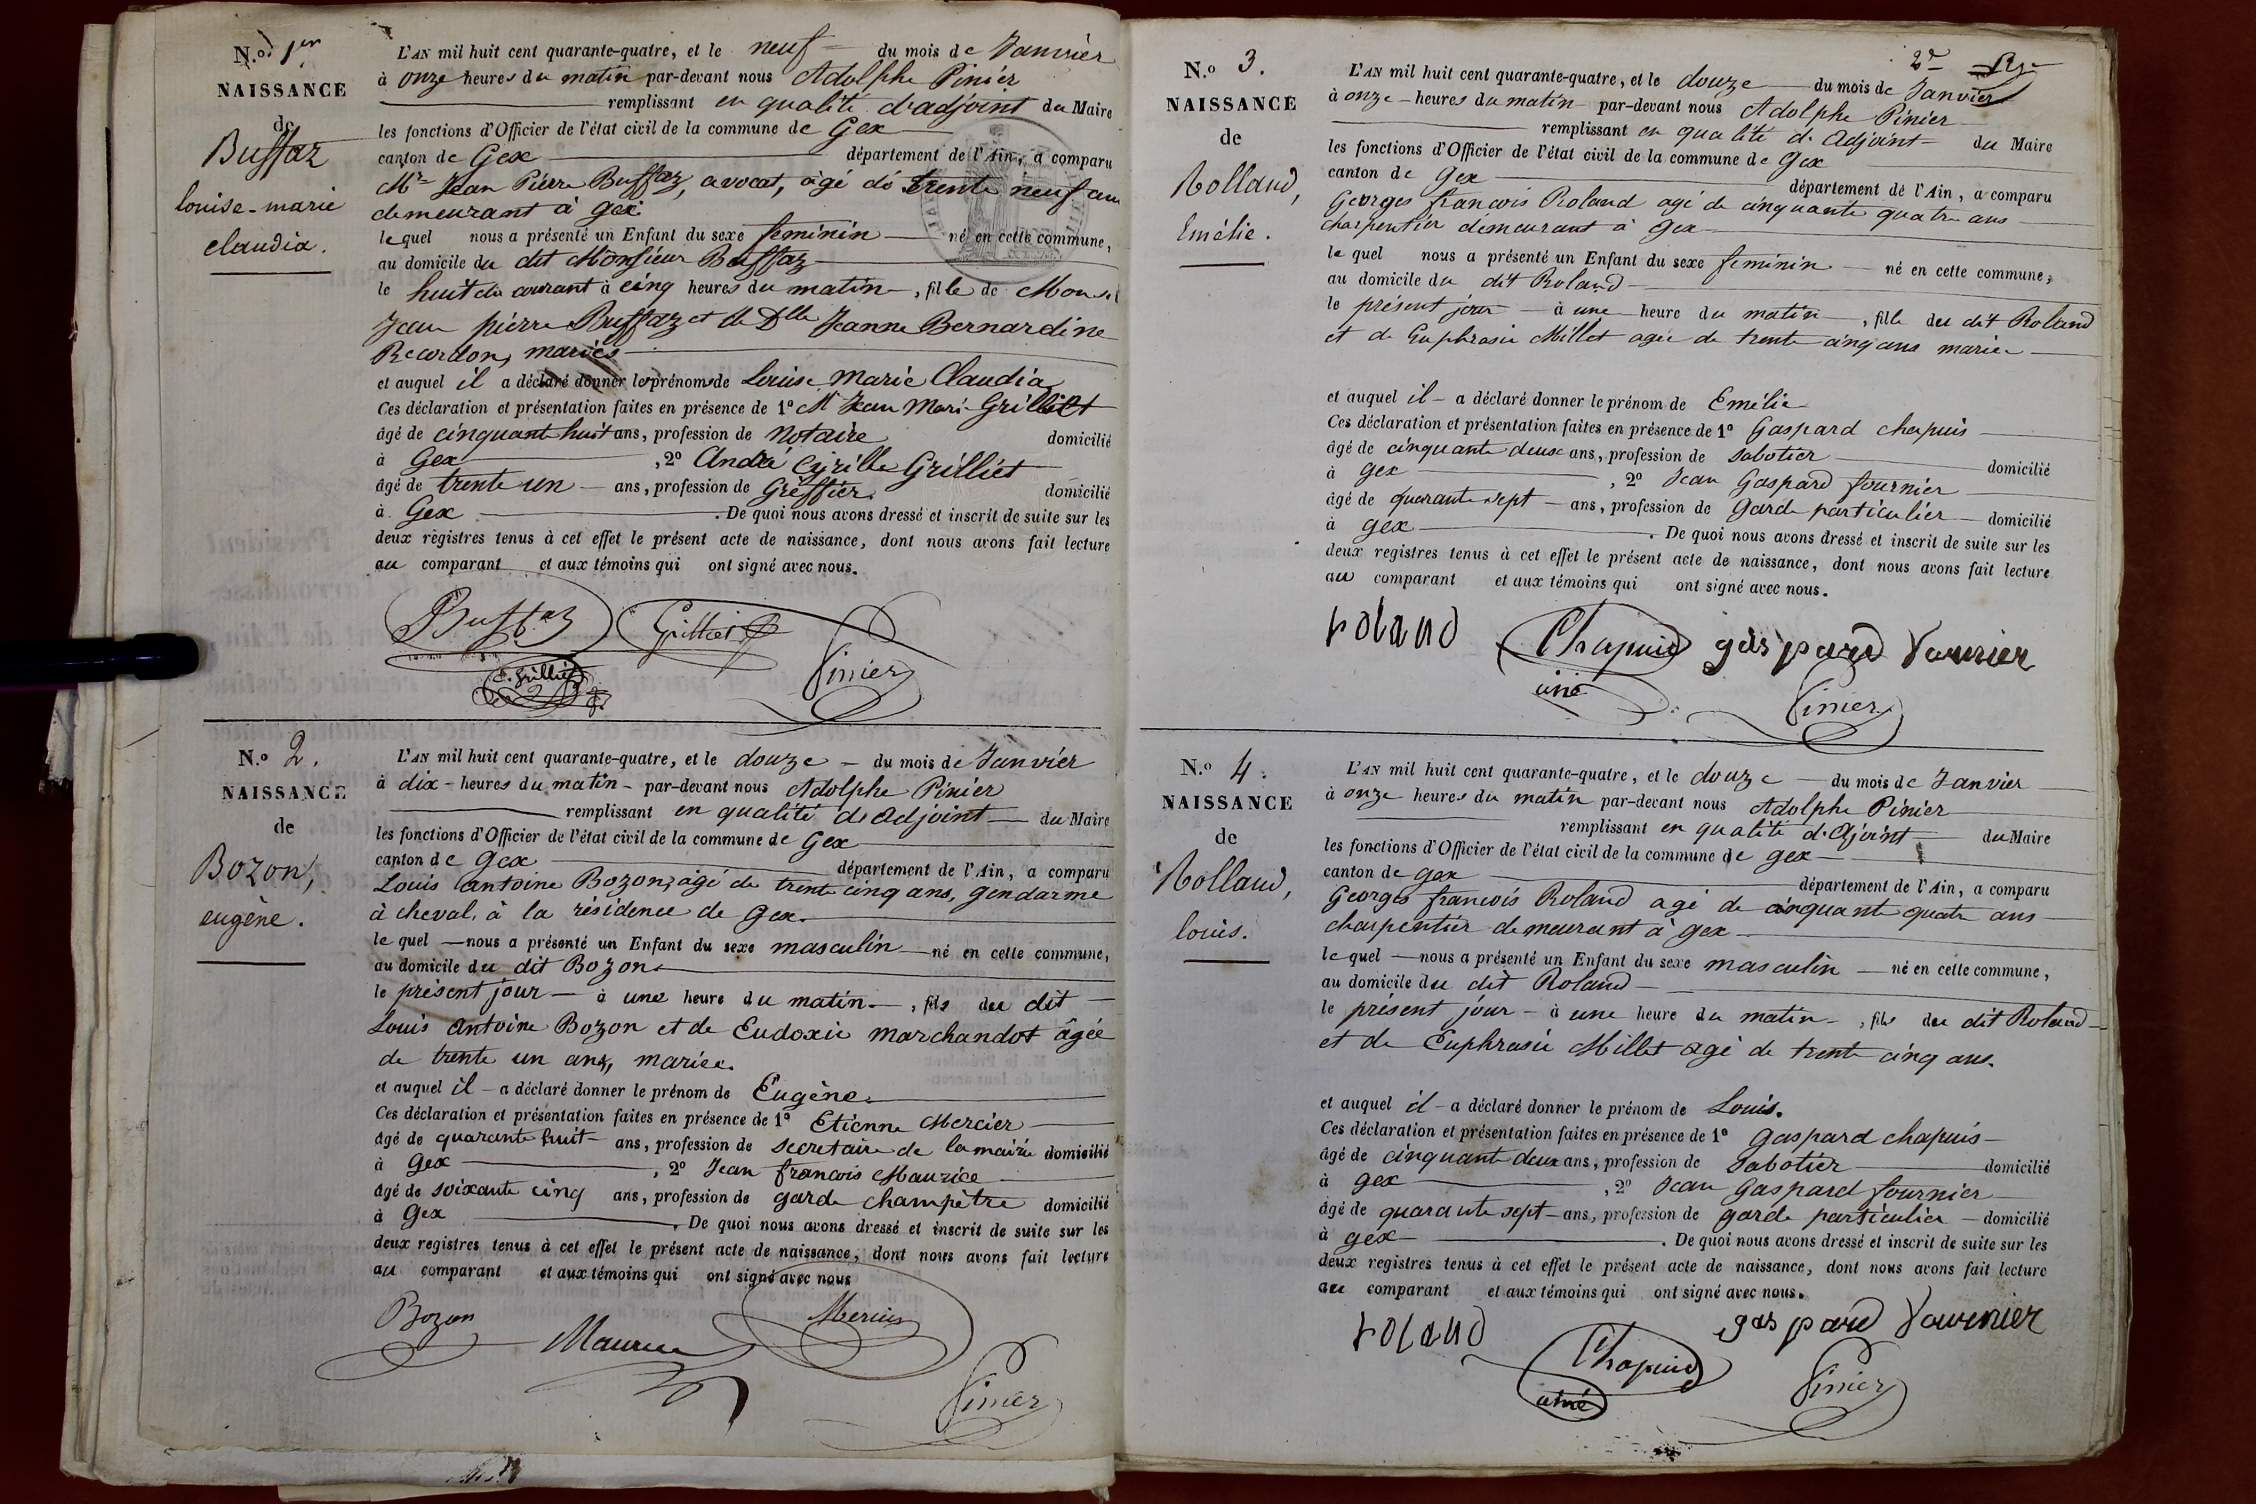 N.o 1er
NAISSANCE
de
Buffaz
louise-marie
claudia.
L'AN mil huit cent quarante-quatre, et le neuf du mois de Janvier
à onze heures du matin par-devant nous Adolphe Pinier
remplissant en qualité d'adjoint du Maire
les fonctions d'Officier de l'état civil de la commune de Gex
canton de Gex département de l'Ain, a comparu
Mr Jean Pierre Buffaz, avocat, âgé de trente neuf ans
demeurant à gex
lequel nous a présenté un Enfant du sexe feminin né en cette commune,
au domicile du dit Monsieur Buffaz
le huit du courant à cinq heures du matin, fille de Monsr
Jean pierre Buffaz et de Dlle Jeanne Bernardine
Recordon, mariés
et auquel il a déclaré donner les prénoms de Louise Marie Claudia
Ces déclaration et présentation faites en présence de 1o Mr Jean Marie Grilliet
âgé de cinquante huit ans, profession de Notaire domicilié
à Gex, 2o André Cyrille Grilliet
âgé de trente un ans, profession de Greffier domicilié
à Gex. De quoi nous avons dressé et inscrit de suite sur les
deux registres tenus à cet effet le présent acte de naissance, dont nous avons fait lecture
au comparant et aux témoins qui ont signé avec nous.
Buffaz Grilliet
C. Grilliet Pinier
N.o 2.
NAISSANCE
de
Bozon,
eugène.
L'AN mil huit cent quarante-quatre, et le douze du mois de Janvier
à dix heures du matin par-devant nous Adolphe Pinier
remplissant en qualité d'Adjoint du Maire
les fonctions d'Officier de l'état civil de la commune de Gex
canton de Gex département de l'Ain, a comparu
Louis antoine Bozon, agé de trente cinq ans, gendarme
à cheval, à la résidence de Gex.
lequel nous a présenté un Enfant du sexe masculin né en cette commune,
au domicile du dit Bozon
le présent jour à une heure du matin, fils du dit
Louis Antoine Bozon et de Eudoxie Marchandot âgée
de trente un ans, mariée.
et auquel il a déclaré donner le prénom de Eugène.
Ces déclaration et présentation faites en présence de 1o Etienne Mercier
âgé de quarante huit ans, profession de secretaire de la mairie domicilié
à Gex, 2o Jean françois Maurice
âgé de soixante cinq ans, profession de garde champêtre domicilié
à Gex. De quoi nous avons dressé et inscrit de suite sur les
deux registres tenus à cet effet le présent acte de naissance, dont nous avons fait lecture
au comparant et aux témoins qui ont signé avec nous
Bozon Maurice Mercier
Pinier
2e
N.o 3.
NAISSANCE
de
Rolland,
Emélie.
L'AN mil huit cent quarante-quatre, et le douze du mois de Janvier
à onze heures du matin par-devant nous Adolphe Pinier
remplissant en qualité d'Adjoint du Maire
les fonctions d'Officier de l'état civil de la commune de Gex
canton de Gex département de l'Ain, a comparu
Georges francois Roland agé de cinquante quatre ans
charpentier demeurant à gex
lequel nous a présenté un Enfant du sexe feminin né en cette commune,
au domicile du dit Roland
le présent jour à une heure du matin, fille du dit Roland
et de Euphrasie Millet agée de trente cinq ans mariée
et auquel il a déclaré donner le prénom de Emélie
Ces déclaration et présentation faites en présence de 1o Gaspard chapuis
âgé de cinquante deux ans, profession de sabotier domicilié
à gex, 2o Jean Gaspard fournier
âgé de quarante sept ans, profession de Garde particulier domicilié
à gex. De quoi nous avons dressé et inscrit de suite sur les
deux registres tenus à cet effet le présent acte de naissance, dont nous avons fait lecture
au comparant et aux témoins qui ont signé avec nous.
roland Chapuis gaspard fournier
ainé Pinier
N.o 4.
NAISSANCE
de
Rolland,
louis.
L'AN mil huit cent quarante-quatre, et le douze du mois de Janvier
à onze heures du matin par-devant nous Adolphe Pinier
remplissant en qualité d'Ajoint du Maire
les fonctions d'Officier de l'état civil de la commune de gex
canton de gex département de l'Ain, a comparu
Georges francois Roland agé de cinquante quatre ans
charpentier demeurant à gex
lequel nous a présenté un Enfant du sexe masculin né en cette commune,
au domicile du dit Roland
le présent jour à une heure du matin, fils du dit Roland
et de Euphrasie Millet agé de trente cinq ans.
et auquel il a déclaré donner le prénom de Louis.
Ces déclaration et présentation faites en présence de 1o Gaspard chapuis
âgé de cinquante deux ans, profession de sabotier domicilié
à gex, 2o Jean Gaspard fournier
âgé de quarante sept ans, profession de garde particulier domicilié
à gex. De quoi nous avons dressé et inscrit de suite sur les
deux registres tenus à cet effet le présent acte de naissance, dont nous avons fait lecture
au comparant et aux témoins qui ont signé avec nous.
roland gaspard fournier
Chapuis Pinier
ainé